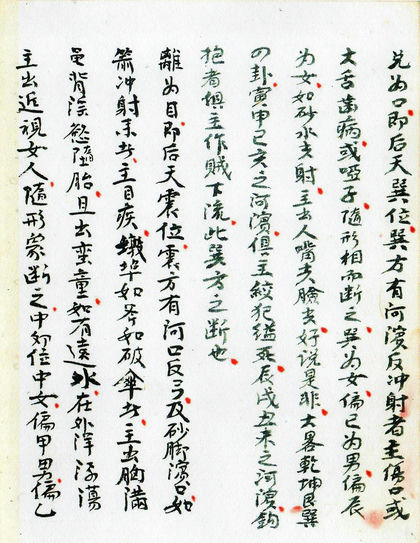 兑为口即后天巽位巽方有河濱反冲射者主傷口或
大舌齒病或哑子随形相而断之巽为女偏巳为男偏辰
为女如砂水尖射主出人嘴尖臉尖好说是非大畧乾坤艮巽
四卦寅申巳亥之河濱俱主絞犯缢死辰戌丑未之河濱鈎
抱者俱主作賊下流此巽方之断也
離为目即后天震位震方有河口反弓及砂脚濱口如
箭冲射来者主目疾墩埠如斧如破傘者主出胸满
曲背淫慾墮胎且出蛮童如有遠水在外洋洋蕩
主出近視女人随形象断之中卯位中女偏甲男偏乙